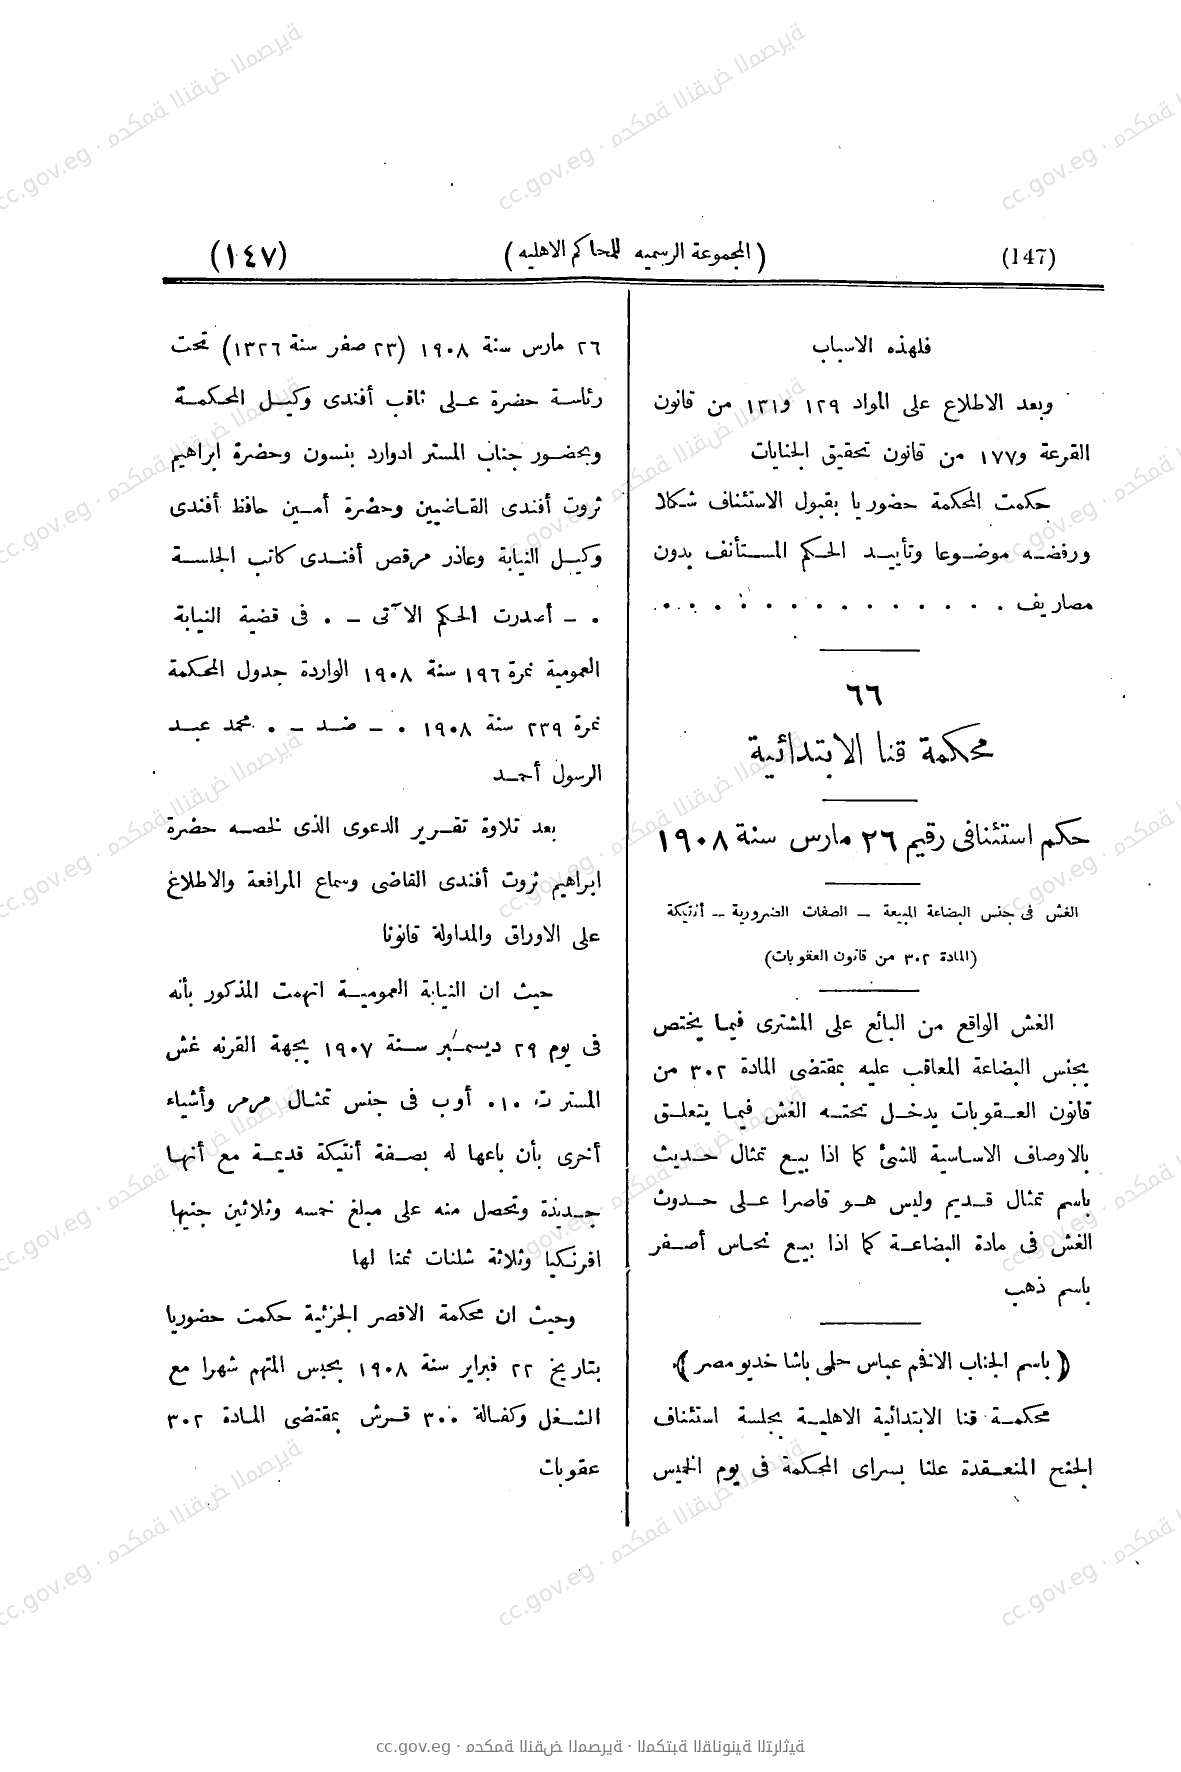 (147)
(المجموعة الرسميه للمحاكم الاهليه)
(١٤٧)
فلهذه الاسباب
وبعد الاطلاع على المواد ١٢٩ و١٣١ من قانون
القرعة و١٧٧ من قانون تحقيق الجنايات
حكمت المحكمة حضوريا بقبول الاستئناف شكلا
ورفضه موضوعا وتأييد الحكم المستأنف بدون
مصاريف . . . . . . . . . . . . . .
٦٦
محكمة قنا الابتدائية
حكم استئنافى رقيم ٢٦ مارس سنة ١٩٠٨
الغش فى جنس البضاعة المبيعة – الصفات الضرورية – أنتيكة
(المادة ٣٠٢ من قانون العقوبات)
الغش الواقع من البائع على المشترى فيما يختص
بجنس البضاعة المعاقب عليه بمقتضى المادة ٣٠٢ من
قانون العقوبات يدخل تحته الغش فيما يتعلق
بالاوصاف الاساسية للشئ كما اذا بيع تمثال حديث
باسم تمثال قديم وليس هو قاصرا على حدوث
الغش فى مادة البضاعة كما اذا بيع نحاس أصفر
باسم ذهب
(باسم الجناب الافخم عباس حلمى باشا خديو مصر)
محكمة قنا الابتدائية الاهلية بجلسة استئناف
الجنح المنعقدة علنا بسراى المحكمة فى يوم الخميس
٢٦ مارس سنة ١٩٠٨ (٢٣ صفر سنة ١٣٢٦) تحت
رئاسة حضرة على ثاقب أفندى وكيل المحكمة
وبحضور جناب المستر ادوارد بنسون وحضرة ابراهيم
ثروت أفندى القاضيين وحضرة أمين حافظ أفندى
وكيل النيابة وعاذر مرقص أفندى كاتب الجلسة
. – أصدرت الحكم الآتى – . فى قضية النيابة
العمومية نمرة ١٩٦ سنة ١٩٠٨ الواردة جدول المحكمة
نمرة ٢٣٩ سنة ١٩٠٨ . – ضد – . محمد عبد
الرسول أحمد
بعد تلاوة تقرير الدعوى الذى لخصه حضرة
ابراهيم ثروت أفندى القاضى وسماع المرافعة والاطلاع
على الاوراق والمداولة قانونا
حيث ان النيابة العمومية اتهمت المذكور بأنه
فى يوم ٢٩ ديسمبر سنة ١٩٠٧ بجهة القرنه غش
المستر ت . ا . أوب فى جنس تمثال مرمر وأشياء
أخرى بأن باعها له بصفة أنتيكة قديمة مع أنها
جديدة وتحصل منه على مبلغ خمسه وثلاثين جنيها
افرنكيا وثلاثة شلنات ثمنا لها
وحيث ان محكمة الاقصر الجزئية حكمت حضوريا
بتاريخ ٢٢ فبراير سنة ١٩٠٨ بحبس المتهم شهرا مع
الشغل وكفالة ٣٠٠ قرش بمقتضى المادة ٣٠٢
عقوبات
cc.gov.eg · محكمة النقض المصرية · المكتبة القانونية التراثية